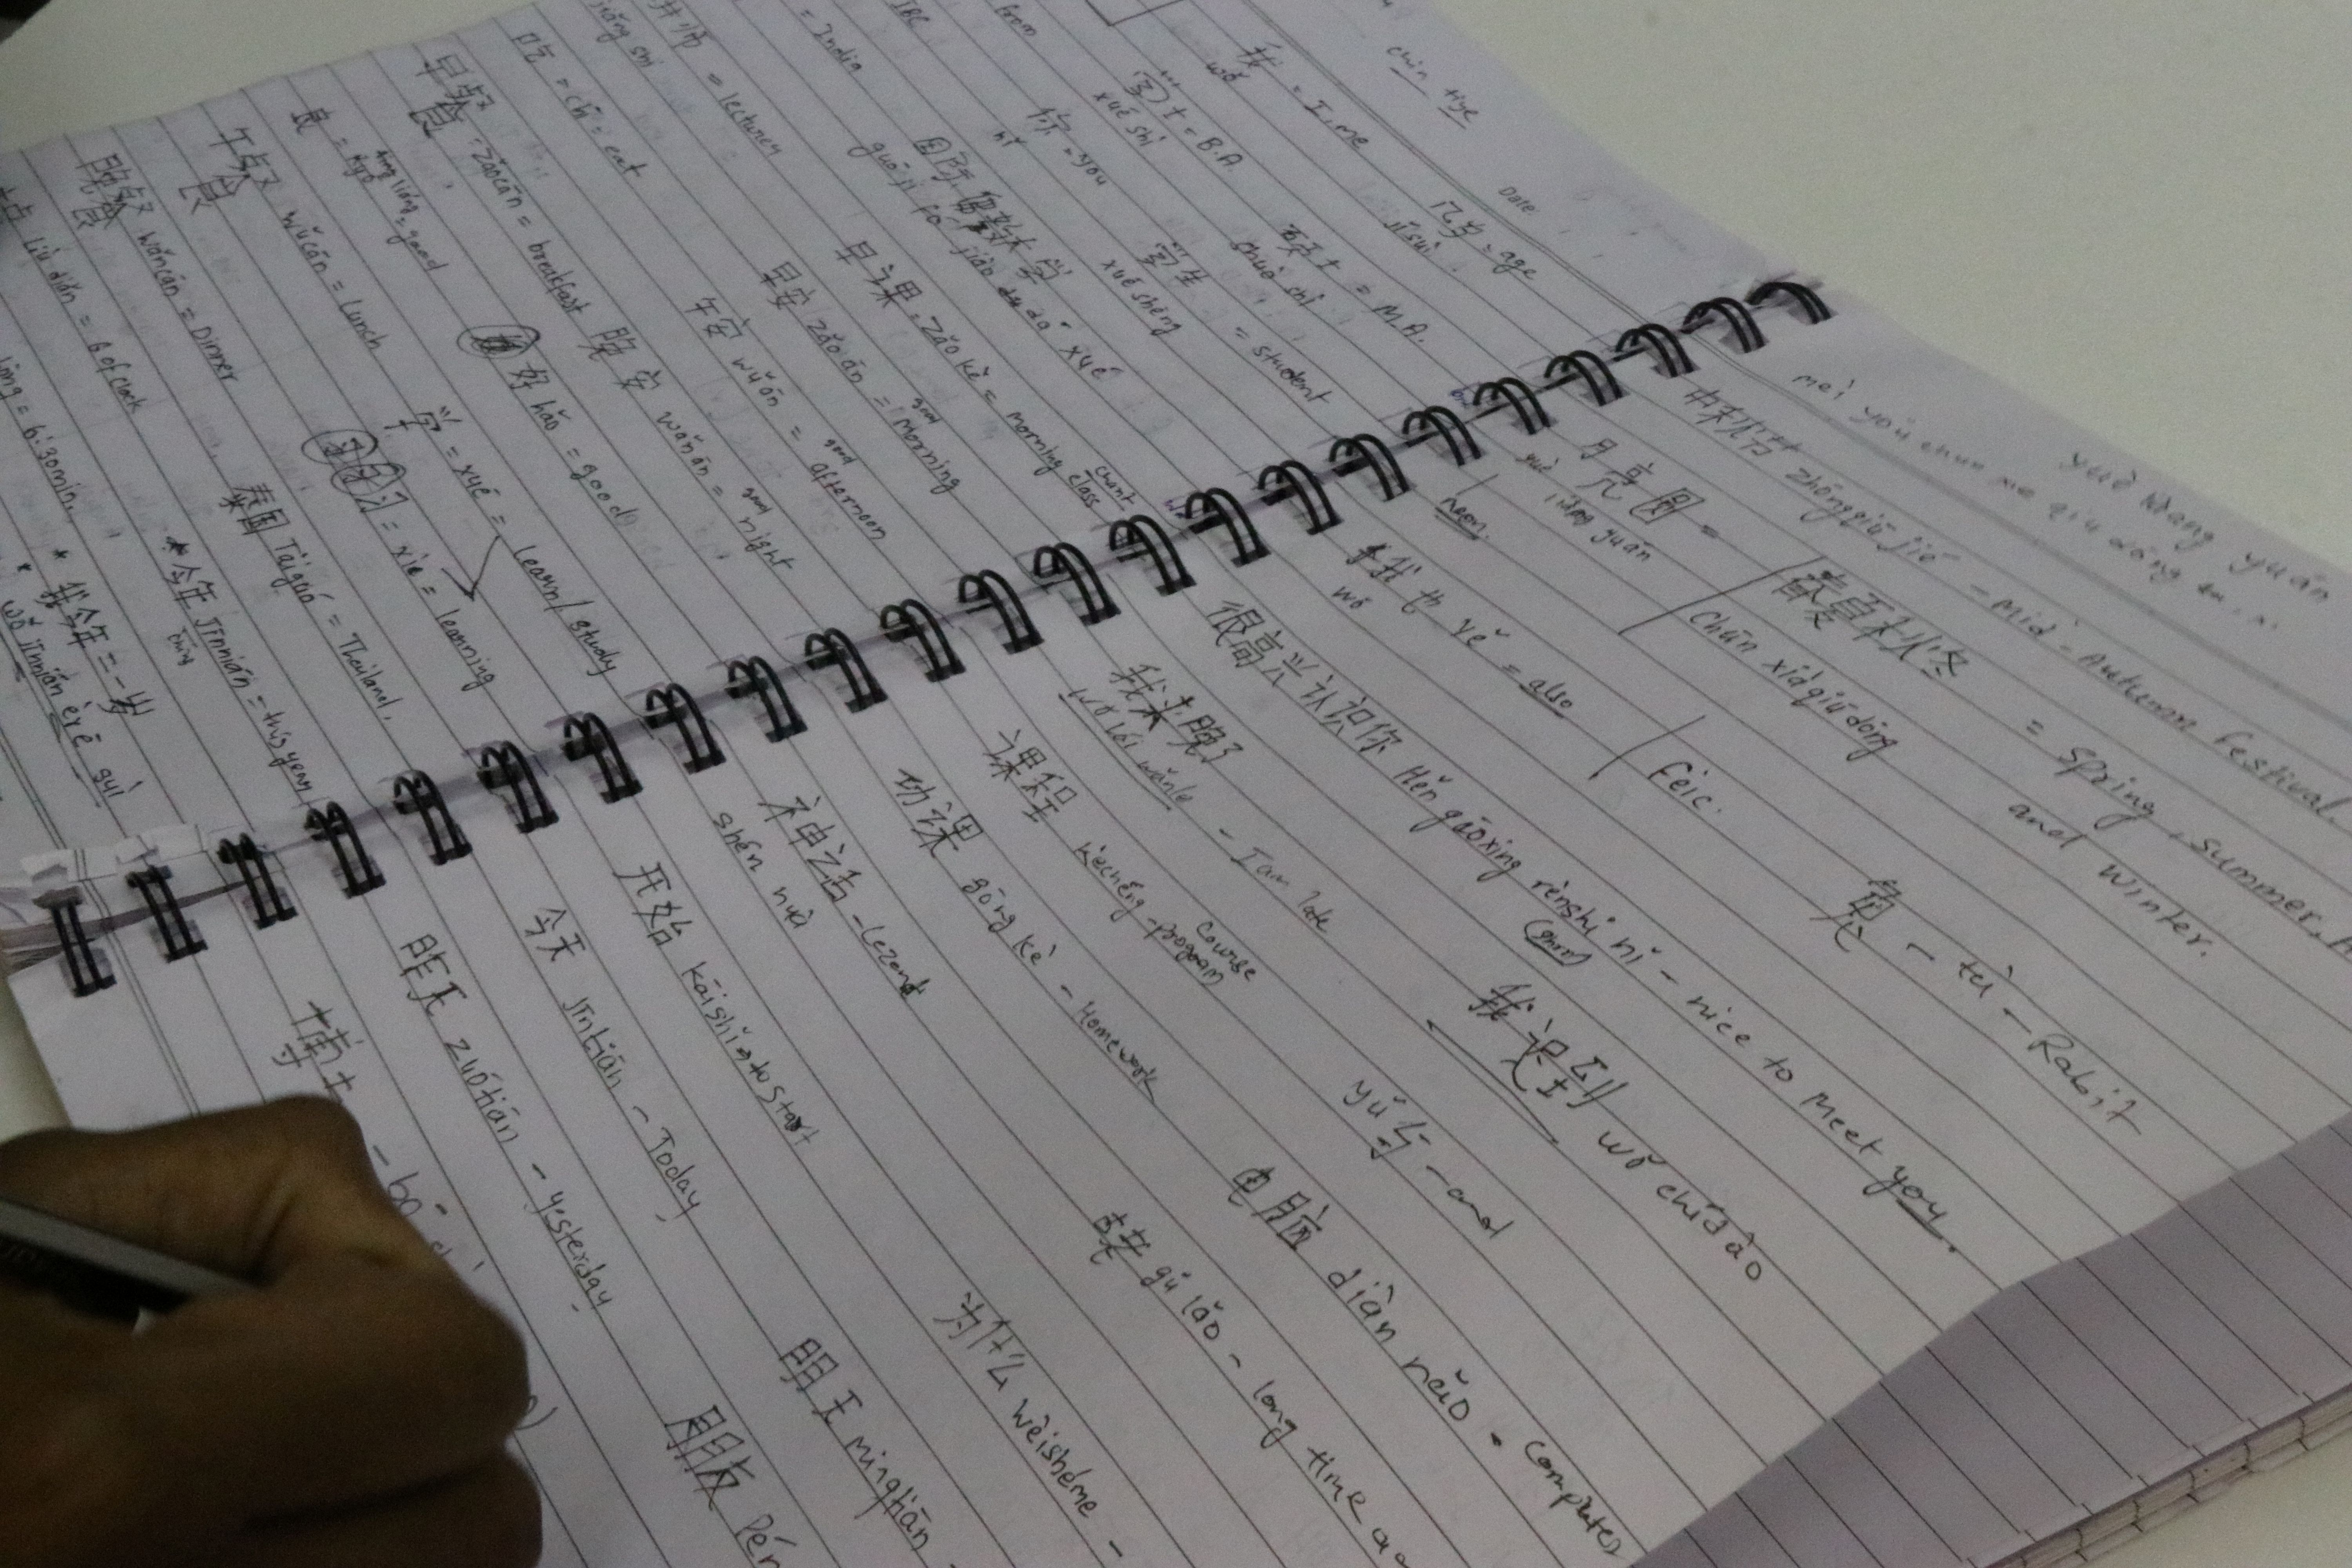 chin
Date
几岁 = age
jǐ suì
我 = I, me
wǒ
学士 = B.A.
xué shì
硕士 = M.A.
shuò shì
你 = you
nǐ
学生 = student
xué shēng
from
IBC
= India
= lecturer
jiǎng shī
早课 = zǎo kè = morning class
chant
早安 zǎo ān = good Morning
午安 wǔ ān = good afternoon
晚安 wǎn ān = good night
吃 = chī = eat
早餐 = zǎocān = breakfast
好 hǎo = good
= good
学 = xué = learn/study
午餐 wǔcān = Lunch
习 = xié = learning
晚餐 wǎncān = Dinner
泰国 Tàiguó = Thailand.
liù diǎn = 6 o'clock
* 今年 Jīnnián = this year
= 6:30 min.
* 我今年 = - 岁
* wǒ jīnnián èr
yuè liang yuán
méi yǒu chūn xià qiū dōng
中秋节 zhōngqiū jié - Mid-Autumn Festival.
月亮圆 =
yuè liàng yuán
春夏秋冬 = spring, summer,
Chūn xià qiū dōng and winter.
我也 yě = also
wǒ
Feic.
兔 - tù - Rabit
很高兴认识你 Hěn gāoxìng rènshi nǐ - nice to Meet you.
我来晚了
wǒ lái wǎnle - I am late
我识到 wǒ chīdào
课程 kèchéng - course program
yǔ 与 - and
功课 gōng kè - Homework
电脑 diàn nǎo - computer
神话 - Lezend
shén huà
gǔ lǎo - long time
开始 kāishǐ → to start
为什么 wèishéme -
今天 jīntiān - Today
míngtiān
zuótiān - yesterday
朋友 Pén
博士 - bó